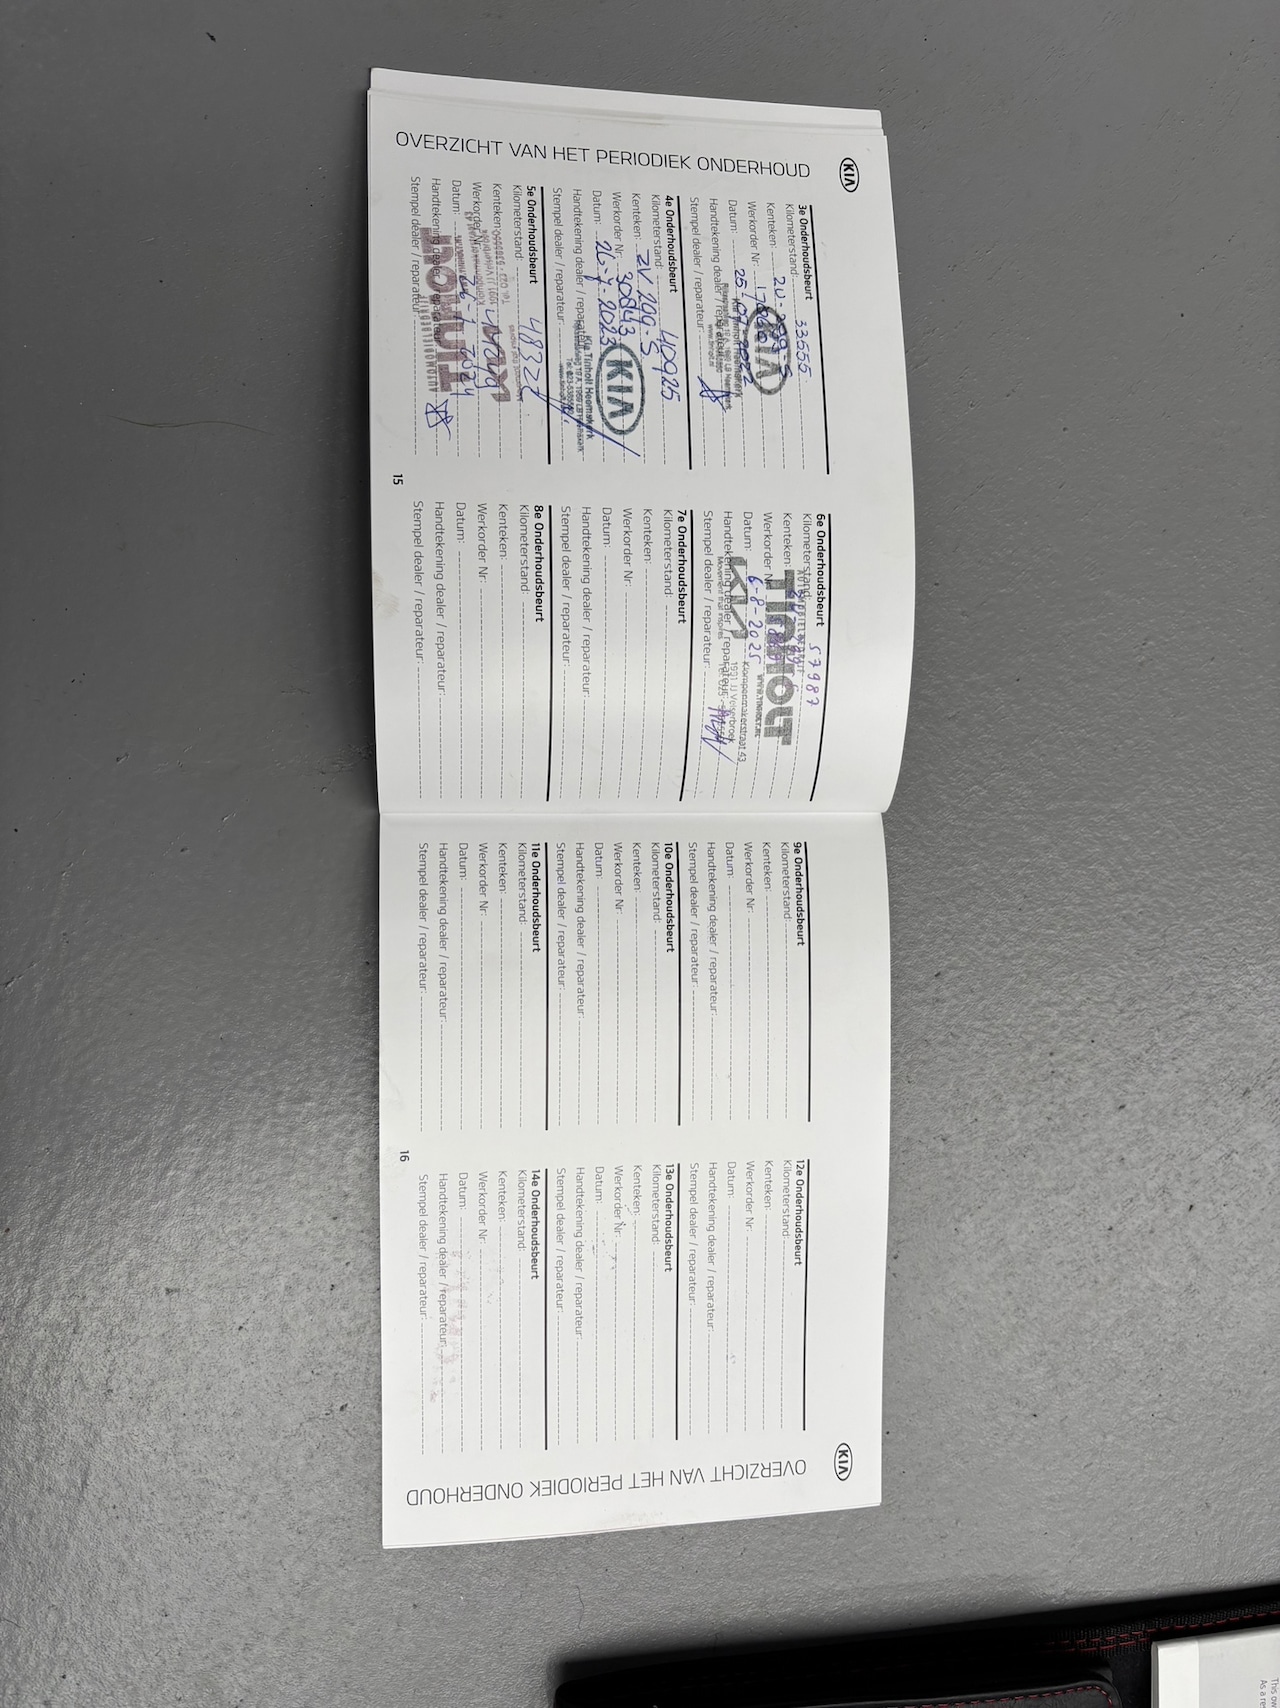 OVERZICHT VAN HET PERIODIEK ONDERHOUD
KIA
3e Onderhoudsbeurt
Kilometerstand: 33555
Kenteken: ZV-299-S
Werkorder Nr:
Datum: 25/07/2022
Handtekening dealer / reparateur:
Stempel dealer / reparateur:
KIA
Kia Tinholt Heemskerk
4e Onderhoudsbeurt
Kilometerstand: 40925
Kenteken: ZV 299-S
Werkorder Nr: 30843
Datum: 26-7-2023
Handtekening dealer / reparateur:
Stempel dealer / reparateur:
KIA
Kia Tinholt Heemskerk
5e Onderhoudsbeurt
Kilometerstand: 48327
Kenteken:
Werkorder Nr:
Datum:
Handtekening dealer / reparateur:
Stempel dealer / reparateur:
TINHOLT
KIA
15
6e Onderhoudsbeurt
Kilometerstand: 57987
Kenteken:
Werkorder Nr:
Datum: 6-8-2025
Handtekening dealer / reparateur:
Stempel dealer / reparateur:
TINHOLT
KIA
Movement that inspires
Klompenmakerstraat 43
1991 JJ Velserbroek
7e Onderhoudsbeurt
Kilometerstand:
Kenteken:
Werkorder Nr:
Datum:
Handtekening dealer / reparateur:
Stempel dealer / reparateur:
8e Onderhoudsbeurt
Kilometerstand:
Kenteken:
Werkorder Nr:
Datum:
Handtekening dealer / reparateur:
Stempel dealer / reparateur:
9e Onderhoudsbeurt
Kilometerstand:
Kenteken:
Werkorder Nr:
Datum:
Handtekening dealer / reparateur:
Stempel dealer / reparateur:
10e Onderhoudsbeurt
Kilometerstand:
Kenteken:
Werkorder Nr:
Datum:
Handtekening dealer / reparateur:
Stempel dealer / reparateur:
11e Onderhoudsbeurt
Kilometerstand:
Kenteken:
Werkorder Nr:
Datum:
Handtekening dealer / reparateur:
Stempel dealer / reparateur:
16
12e Onderhoudsbeurt
Kilometerstand:
Kenteken:
Werkorder Nr:
Datum:
Handtekening dealer / reparateur:
Stempel dealer / reparateur:
13e Onderhoudsbeurt
Kilometerstand:
Kenteken:
Werkorder Nr:
Datum:
Handtekening dealer / reparateur:
Stempel dealer / reparateur:
14e Onderhoudsbeurt
Kilometerstand:
Kenteken:
Werkorder Nr:
Datum:
Handtekening dealer / reparateur:
Stempel dealer / reparateur:
KIA
OVERZICHT VAN HET PERIODIEK ONDERHOUD